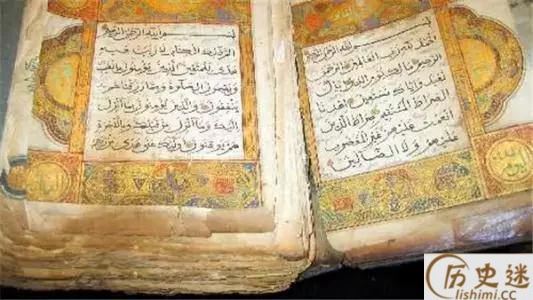 بسم الله الرحمن الرحيم
الحمد لله رب العالمين الرحمن
الرحيم مالك يوم الدين اياك
نعبد واياك نستعين اهدنا
الصراط المستقيم صراط الذين
انعمت عليهم غير المغضوب
عليهم ولا الضالين
بسم الله الرحمن الرحيم
الم ذلك الكتاب لا ريب فيه
هدى للمتقين الذين يؤمنون بالغيب
ويقيمون الصلوة ومما رزقناهم
ينفقون والذين يؤمنون بما انزل
اليك وما انزل من قبلك وبالآخرة
هم يوقنون اولئك على هدى من ربهم
历史迷
lishimi.cc